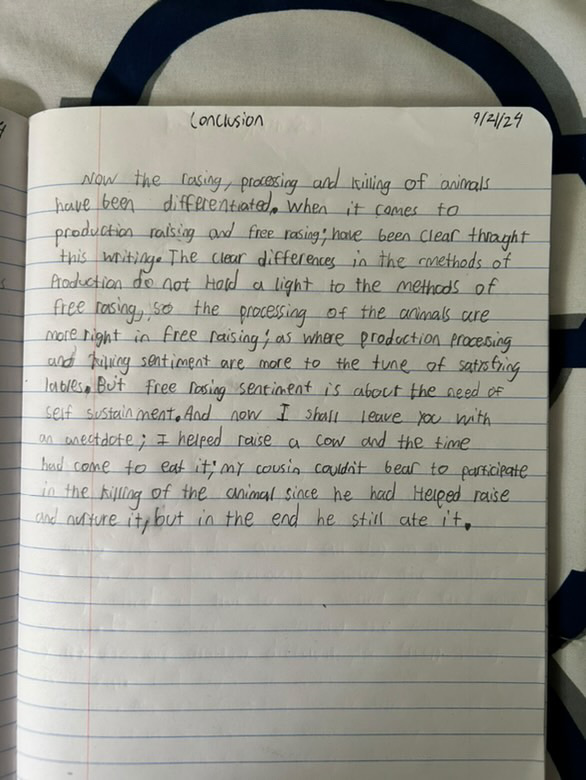 Conclusion 9/21/24
Now the rasing, processing and killing of animals
have been differentiated. When it comes to
production raising and free rasing; have been clear throught
this writing. The clear differences in the methods of
Production do not Hold a light to the methods of
free rasing, so the processing of the animals are
more right in free raising; as where production processing
and killing sentiment are more to the tune of satisfring
lables. But free rasing sentiment is about the need of
self sustainment. And now I shall leave you with
an anectdote; I helped raise a cow and the time
had come to eat it; my cousin couldn't bear to participate
in the killing of the animal since he had Helped raise
and nurture it, but in the end he still ate it.